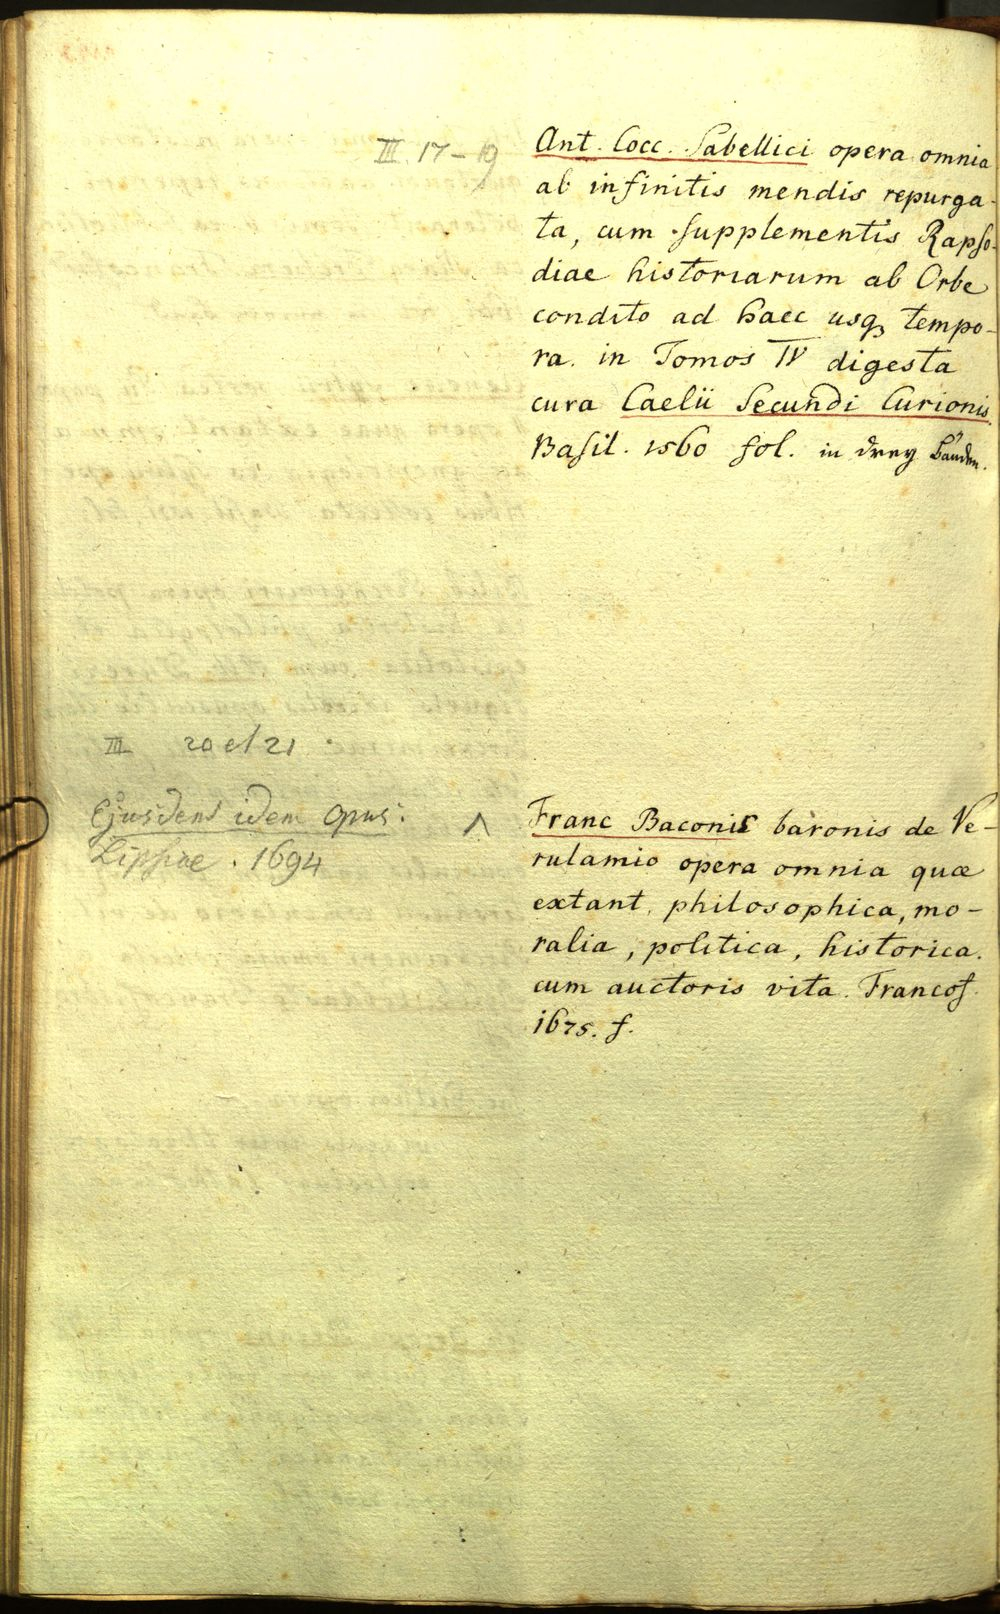 III. 17-19
Ant. Cocc. Sabellici opera omnia
ab infinitis mendis repurga-
ta, cum supplementis Rapso-
diae historiarum ab Orbe
condito ad haec usq3 tempo-
ra. in Tomos IV digesta
cura Caelii Secundi Curionis.
Basil. 1560 fol. in drey Bänden.
III 20 et 21.
Ejusdem idem opus.
Lipsiae. 1694
Franc Baconis baronis de Ve-
rulamio opera omnia quae
extant, philosophica, mo-
ralia, politica, historica.
cum auctoris vita. Francof.
1675. f.